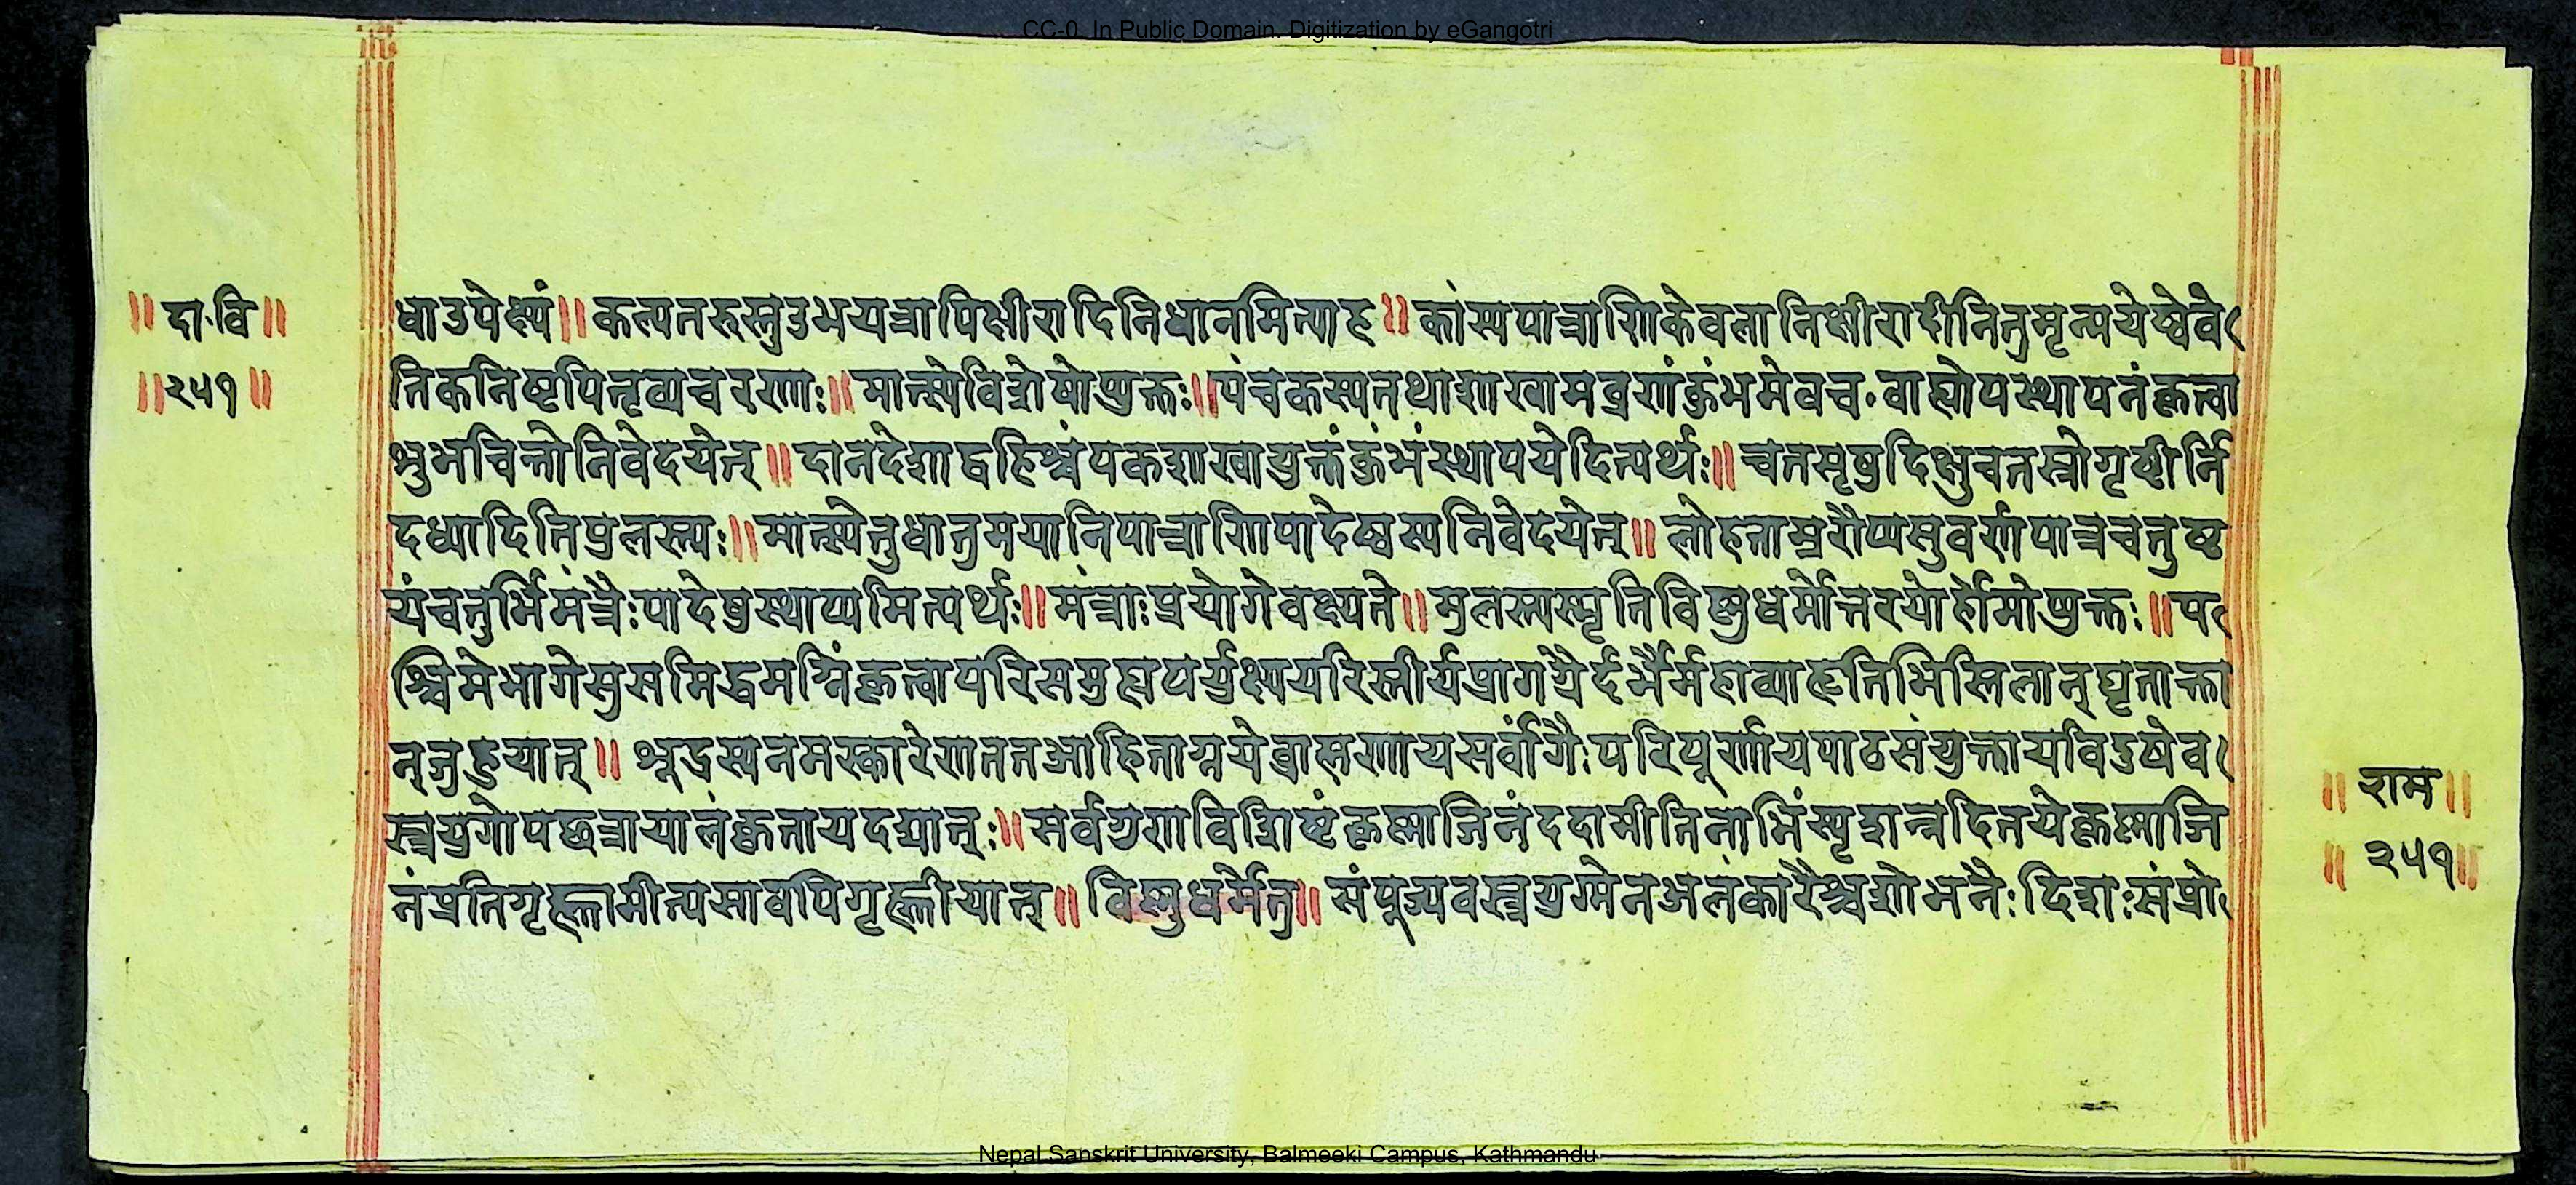 CC-0. In Public Domain. Digitization by eGangotri
॥ दा.वि ॥
॥ २५१ ॥
धाउपेक्ष्यं॥ कल्पतरुस्तुउभयत्रापिक्षीरादिनिधानमित्याह॥ कांस्यपात्राणिकेवलानिक्षीरादीनितुमृन्मयेष्वेवे
तिकनिष्टपितृव्यचरणाः॥ मात्स्येविशेषोप्युक्तः॥ पंचकस्यतथाशाखामव्रणंकुंभमेवच॰ वाह्योपस्थापनंकृत्वा
शुभचित्तोनिवेदयेत्॥ दानदेशाद्वहिश्चंपकशाखायुक्तंकुंभंस्थापयेदित्यर्थः॥ चतसृषुदिक्षुचतस्रोगृष्टीर्नि
दध्यादितिपुलस्त्यः॥ मात्स्येतुधातुमयानिपात्राणिपादेष्वस्यनिवेदयेत्॥ लोहताम्ररौप्यसुवर्णपात्रचतुष्ट
यंचतुर्भिर्मंत्रैःपादेषुस्थाप्यमित्यर्थः॥ मंत्राःप्रयोगेवक्ष्यन्ते॥ पुलस्त्यस्मृतिविष्णुधर्मोत्तरयोर्होमोप्युक्तः॥ प
श्चिमेभागेसुसमिद्धमग्निंकृत्वापरिसमुह्यपर्युक्ष्यपरिस्तीर्यप्रागग्रैर्दर्भैर्महाव्याहृतिभिस्तिलान्घृताक्ता
न्जुहुयात्॥ शूद्रस्यनमस्कारेणततआहिताग्नयेब्राह्मणायसर्वांगैःपरिपूर्णायपाठसंयुक्तायविदुषेव
स्त्रयुगोपछन्नायालंकृतायदद्यात्ः॥ सर्वगुणविशिष्टंकृष्णाजिनंददामीतिनाभिंस्पृशन्प्रदितयेकृष्णाजि
नंप्रतिगृह्णामीत्यसावपिगृह्णीयात्॥ विष्णुधर्मेतु॥ संपूज्यवस्त्रयुग्मेनअलंकारैश्चशोभनैः दिशःसंप्रो
॥ राम ॥
॥ २५१ ॥
Nepal Sanskrit University, Balmeeki Campus, Kathmandu